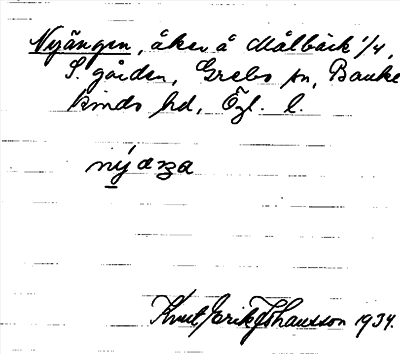 Nyängen, åker å Målbäck 1/4,
S. gården, Grebo sn, Banke
kinds hd, Ögl. l.
Knut Erik Johansson 1934.